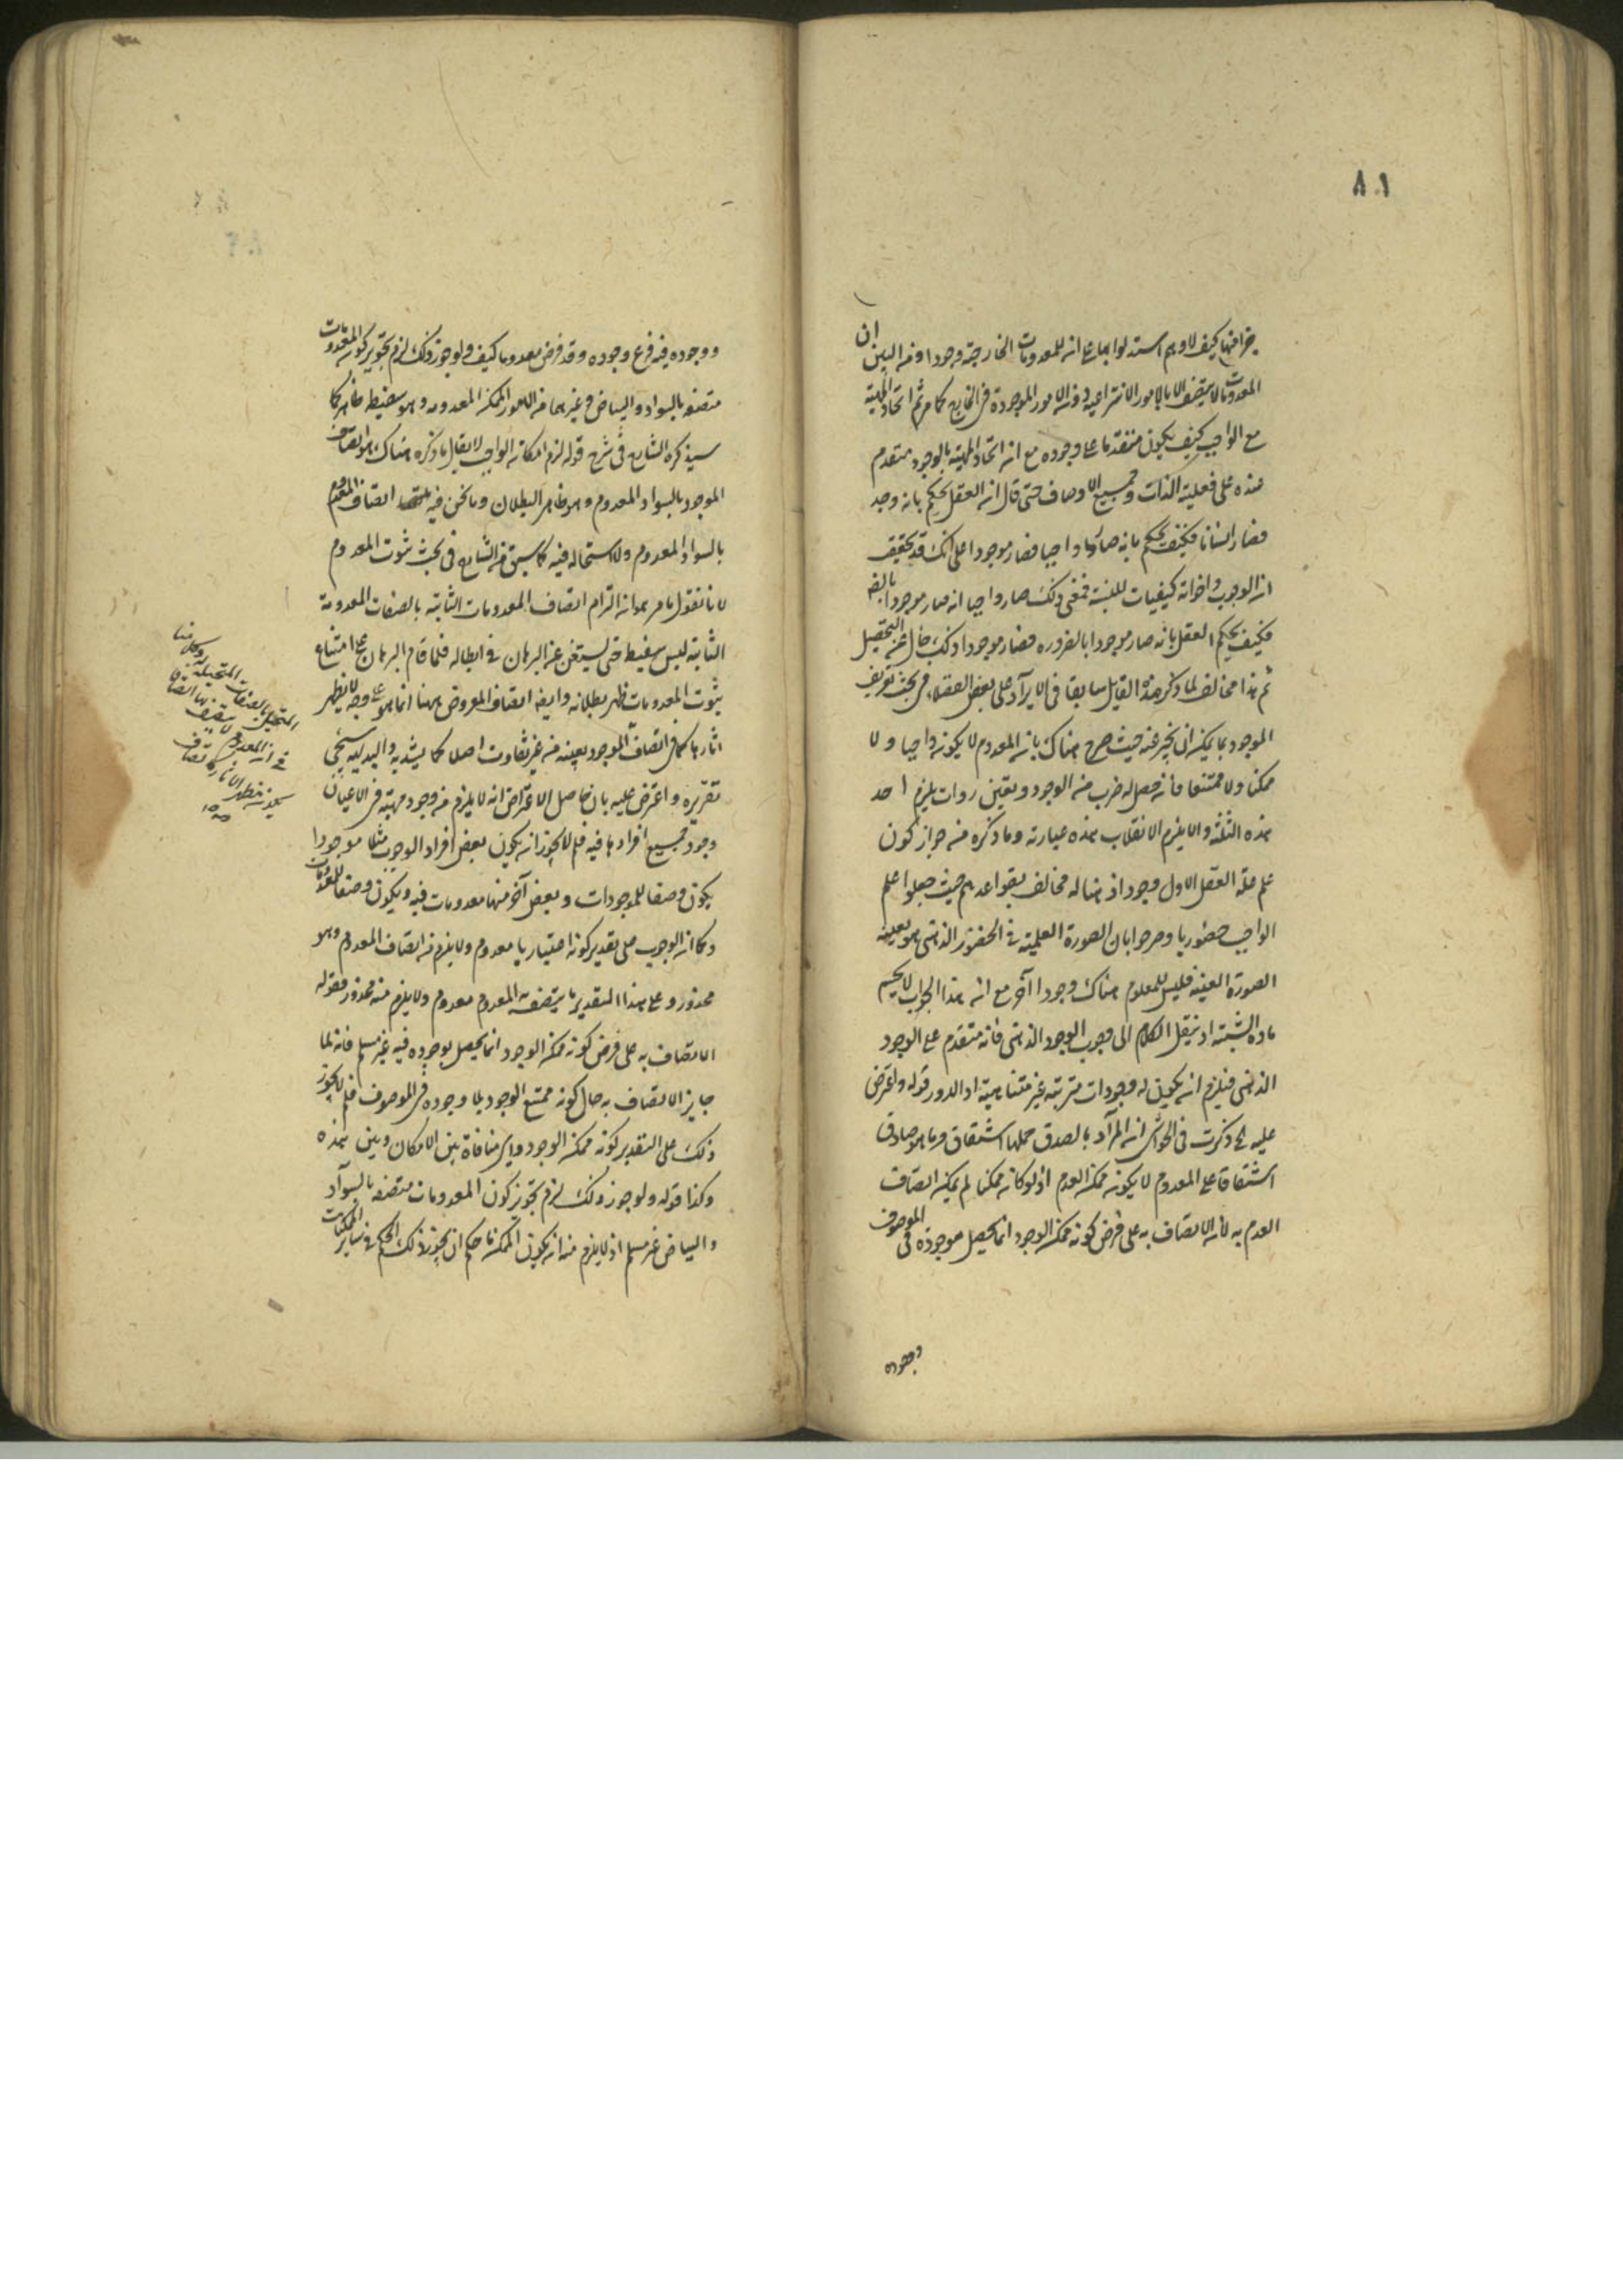 ٨١
كيف لا وهم استدلوا بها على ان للمعدومات الخارجية وجودا ومن البين ان
المعدومات لا يتصف الا بالامور الانتزاعية دون الامور الموجودة في الخارج كما مر ثم اتحاد المهية
مع الواجب كيف يكون متقدما على وجوده مع ان اتحاد المهية بالوجود متقدم
عنده على فعلية الذات وجميع الاوصاف حتى قال ان العقل يحكم بانه وجد
فصار انسانا فكيف يحكم بانه صار واجبا فصار موجودا على انك قد تحقيق
ان الوجوب واخواته كيفيات للنسبة فمعنى ذلك صار واجبا انه صار موجودا بالضرورة
فكيف يحكم العقل بانه صار موجودا بالضرورة فصار موجودا وذلك خال عن التحصيل
ثم هذا مخالف لما ذكر هذا القايل سابقا في الايراد على بعض الفضلاء في بحث تعريف
الموجود بما يمكن ان يخبر عنه حيث صرح هناك بان المعدوم لا يكون واجبا ولا
ممكنا ولا ممتنعا فانه حصل له ضرب من الوجود وتعين روات يلزم احد
هذه الثلثة والا يلزم الانقلاب هذه عبارته وما ذكره من جواز كون
علم علة العقل الاول وجود اذهنا له مخالف بقواعدهم حيث جعلوا علم
الواجب حضوريا وصرحوا بان الصورة العلمية في الحضور الذهني هو بعينه
الصورة العينية فليس للمعلوم هناك وجودا آخر مع ان هذا الجواب لا يحسم
مادة الشبهة اذ ينقل الكلام الى وجوب الوجود الذهني فانه متقدم على الوجود
الذهني فيلزم ان يكون له وجودات مترتبة غير متناهية او الدور قوله واعترض
عليه الخ ذكرت في الحواشي ان المراد بالصدق حملها اشتقاقا وما هو صادق
اشتقاقا على المعدوم لا يكون ممكن العدم اذ لو كان ممكنا لم يمكن اتصاف
العدم به لان الاتصاف به على فرض كونه ممكن الوجود انما يحصل بوجوده في الموصوف
ووجوده
ووجوده فيه فرع وجوده وقد فرض معدوما كيف ولو جوز ذلك لزم تجويز كون المعدومات
متصفة بالسواد والبياض وغيرهما من الامور الممكنة المعدومة وهو سفسطة ظاهر كما
سيذكره الشارح في شرح قوله لزم امكان الواجب لا يقال ما ذكره هناك هو اتصاف
الموجود بالسواد المعدوم وهو ظاهر البطلان وما نحن فيه اتصاف المعدوم
بالسواد المعدوم ولا استحالة فيه كما سبق من الشارح في بحث ثبوت المعدوم
لانا نقول ما مر هو ان التزام اتصاف المعدومات الثابتة بالصفات المعدومة
الثابتة ليس سفسطة حتى يستغنى عن البرهان في ابطاله فلما قام البرهان على امتناع
ثبوت المعدومات ظهر بطلانه وايضا اتصاف المعروض ههنا انما هو على وجه لا يظهر
آثارها كما في اتصاف الموجود بعينه من غير تفاوت اصلا كما يشهد به والبديهية سيجئ
تقريره واعترض عليه بان حاصل الاعتراض انه لا يلزم من وجود مهية في الاعيان
وجود جميع افرادها فيه فلم لا يجوز ان يكون بعض افراد الوجوب مثلا موجودا
يكون وصفا للموجودات وبعض آخر منها معدومات فيه ويكون وصفا للمعدومات
وكما ان الوجوب على تقدير كونه اعتباريا معدوم ولا يلزم من اتصاف المعدوم وهو
محذور وعلى هذا التقدير ما يتصف به المعدوم معدوم ولا يلزم منه محذور فقوله
الاتصاف به على فرض كونه ممكن الوجود انما يحصل بوجوده فيه غير مسلم فانه لما
جاز الاتصاف به حال كونه ممتنع الوجود بلا وجوده في الموصوف فلم لا يجوز
ذلك على التقدير كونه ممكن الوجود واي منافاة بين الامكان وبين هذه
وكذا قوله ولو جوز ذلك لزم تجويز كون المعدومات متصفة بالسواد
والبياض غير مسلم اذ لا يلزم من ان يكون الممكن ما حكم ان يجوز ذلك الحكم في سائر الممكنات